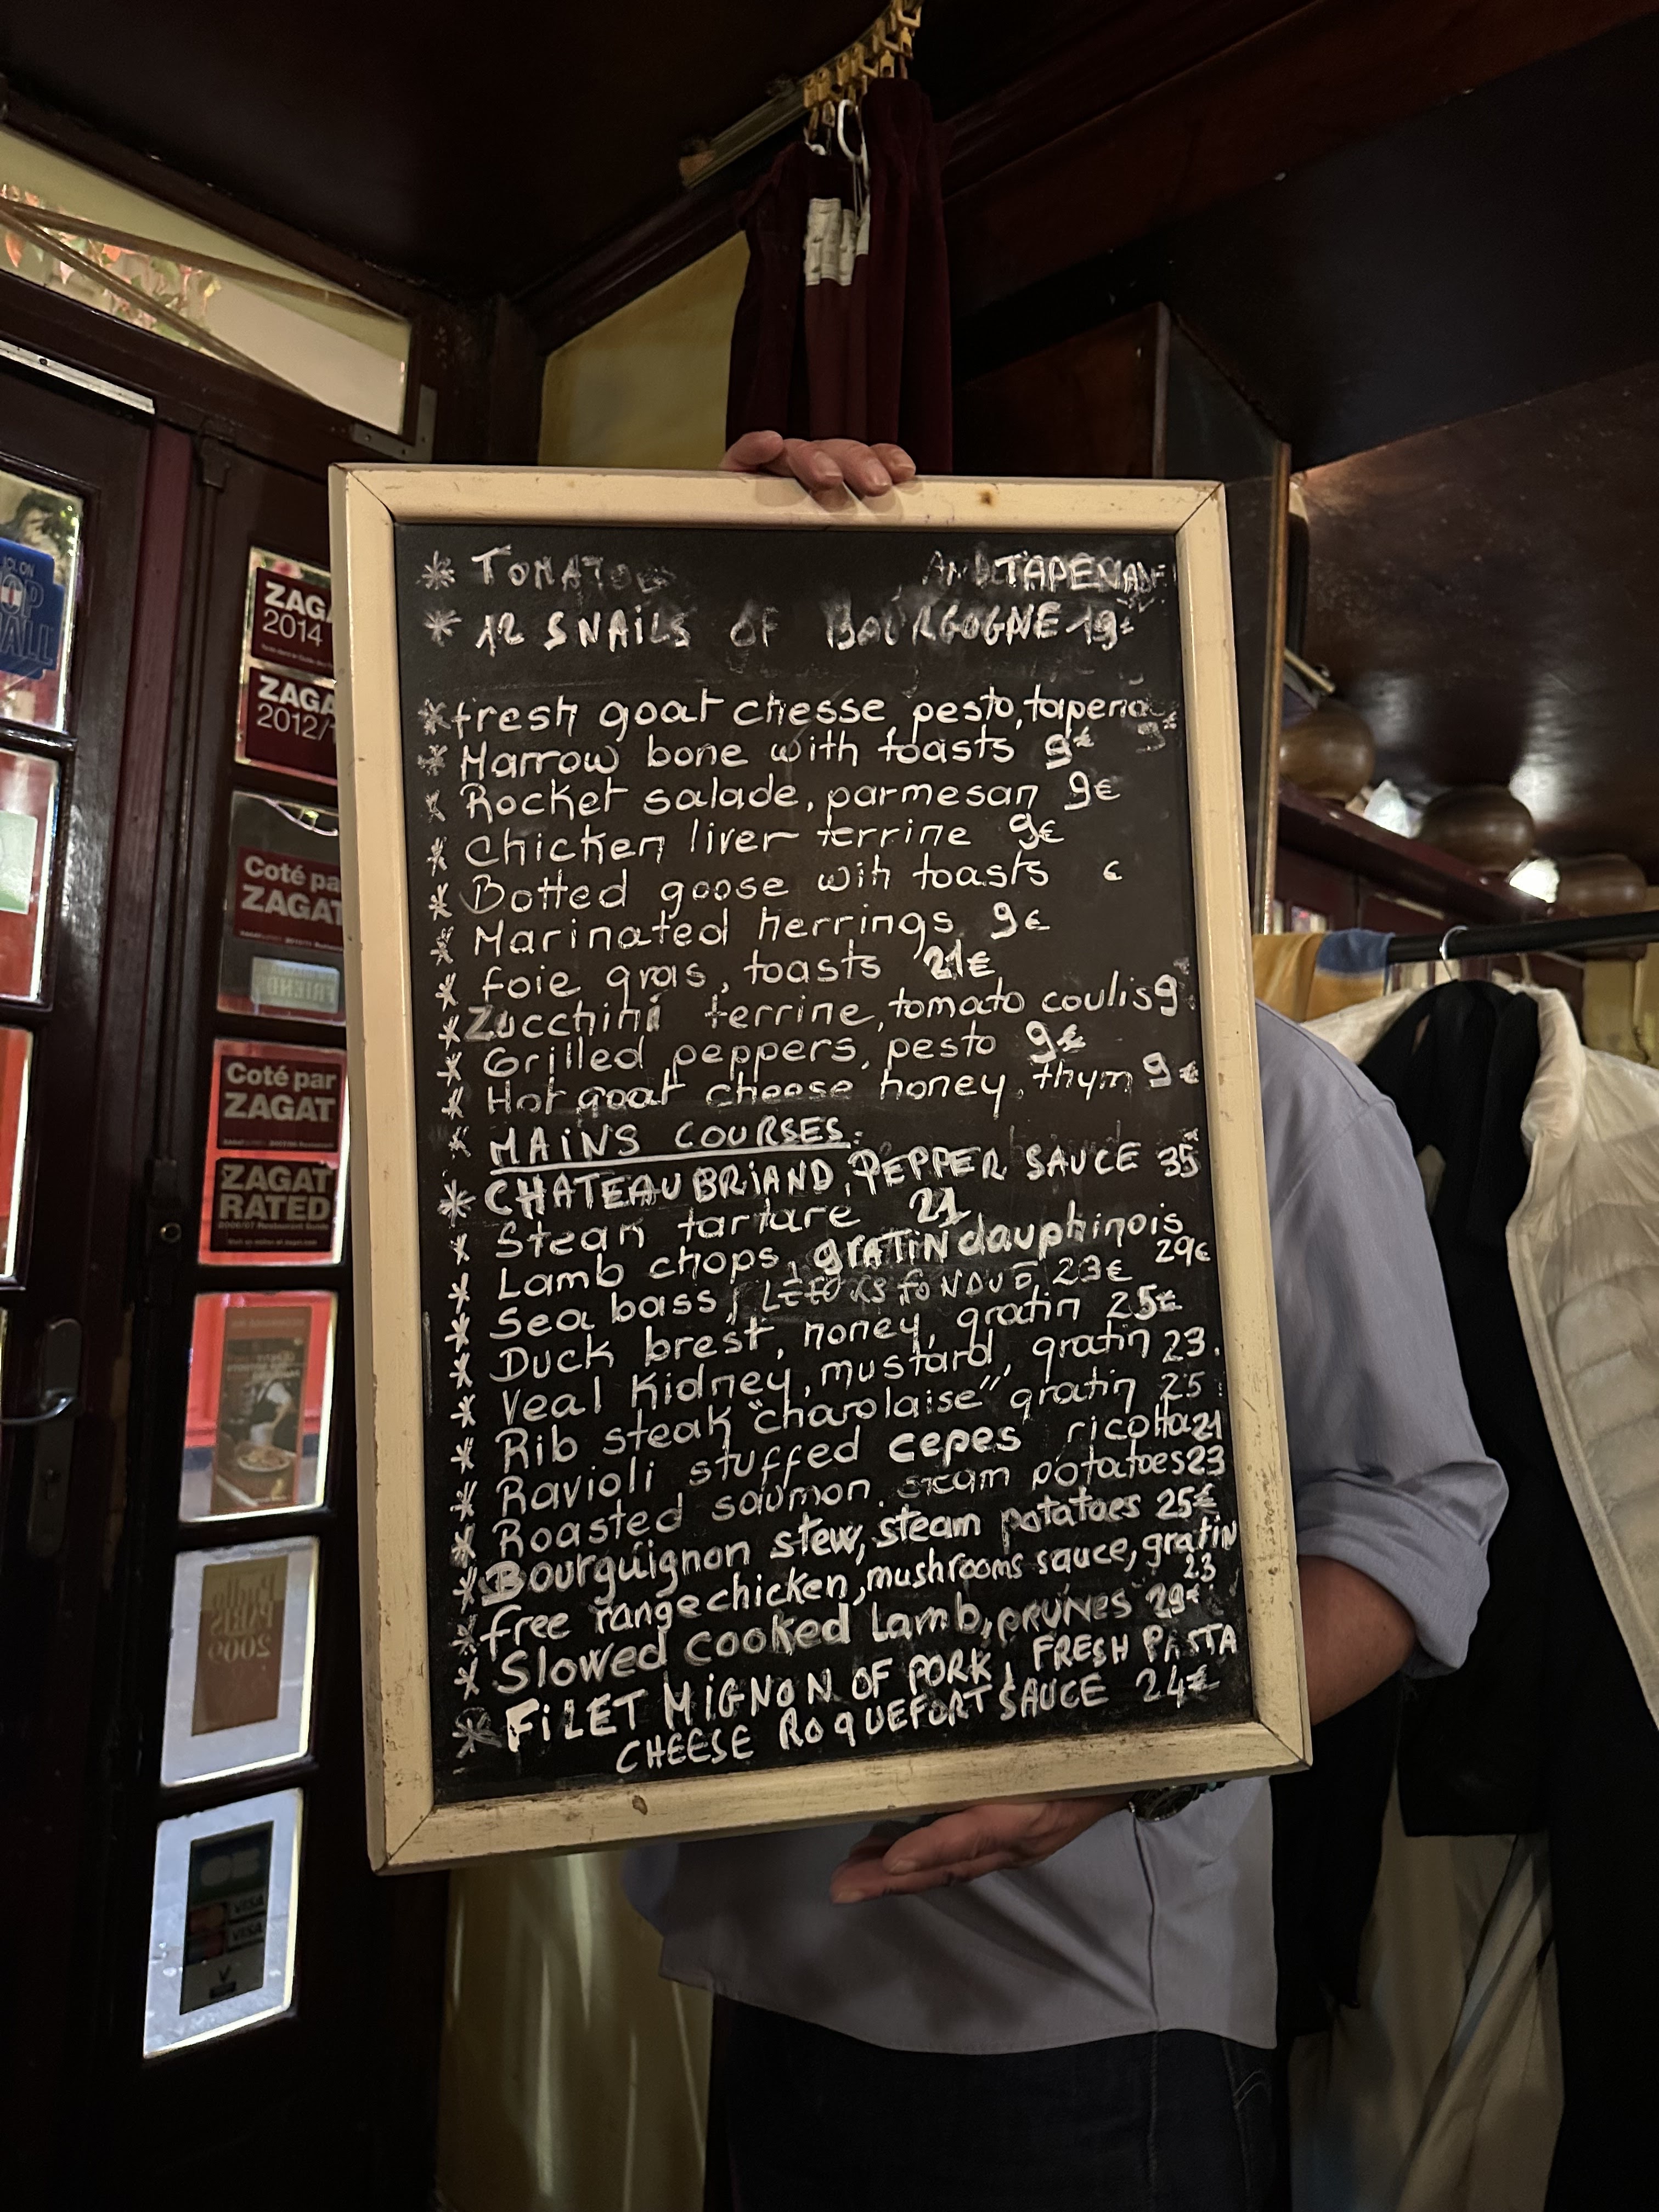 * TOMATOE AND TAPENADE
* 12 SNAILS OF BOURGOGNE 19€
* fresh goat chesse pesto, tapena
9€
* Marrow bone with toasts 9€
* Rocket salade, parmesan 9€
* Chicken liver terrine 9€
* Botted goose wih toasts €
* Marinated herrings 9€
* foie gras, toasts 21€
* Zucchini terrine, tomato coulis 9
* Grilled peppers, pesto 9€
* Hot goat cheese honey, thym 9€
* MAINS COURSES:
* CHATEAUBRIAND, PEPPER SAUCE 35€
* Steak tartare 21
* Lamb chops, GRATIN dauphinois
29€
* Sea bass, FONDUE 23€
* Duck brest, honey, gratin 25€
* Veal Kidney, mustard, gratin 23.
* Rib steak "charolaise" gratin 25
* Ravioli stuffed cepes ricotta 21
* Roasted saumon, steam potatoes 23
* Bourguignon stew, steam potatoes 25€
* free range chicken, mushrooms sauce, gratin
23
* Slowed cooked Lamb, PRUNES 29€
* FILET MIGNON OF PORK, FRESH PASTA
CHEESE ROQUEFORT SAUCE 24€
ZAGA
2014
ZAGA
2012/1
Coté pa
ZAGAT
Coté par
ZAGAT
ZAGAT
RATED
2006/07 Restaurant Guide
PARIS
2009
VISA
VISA
V